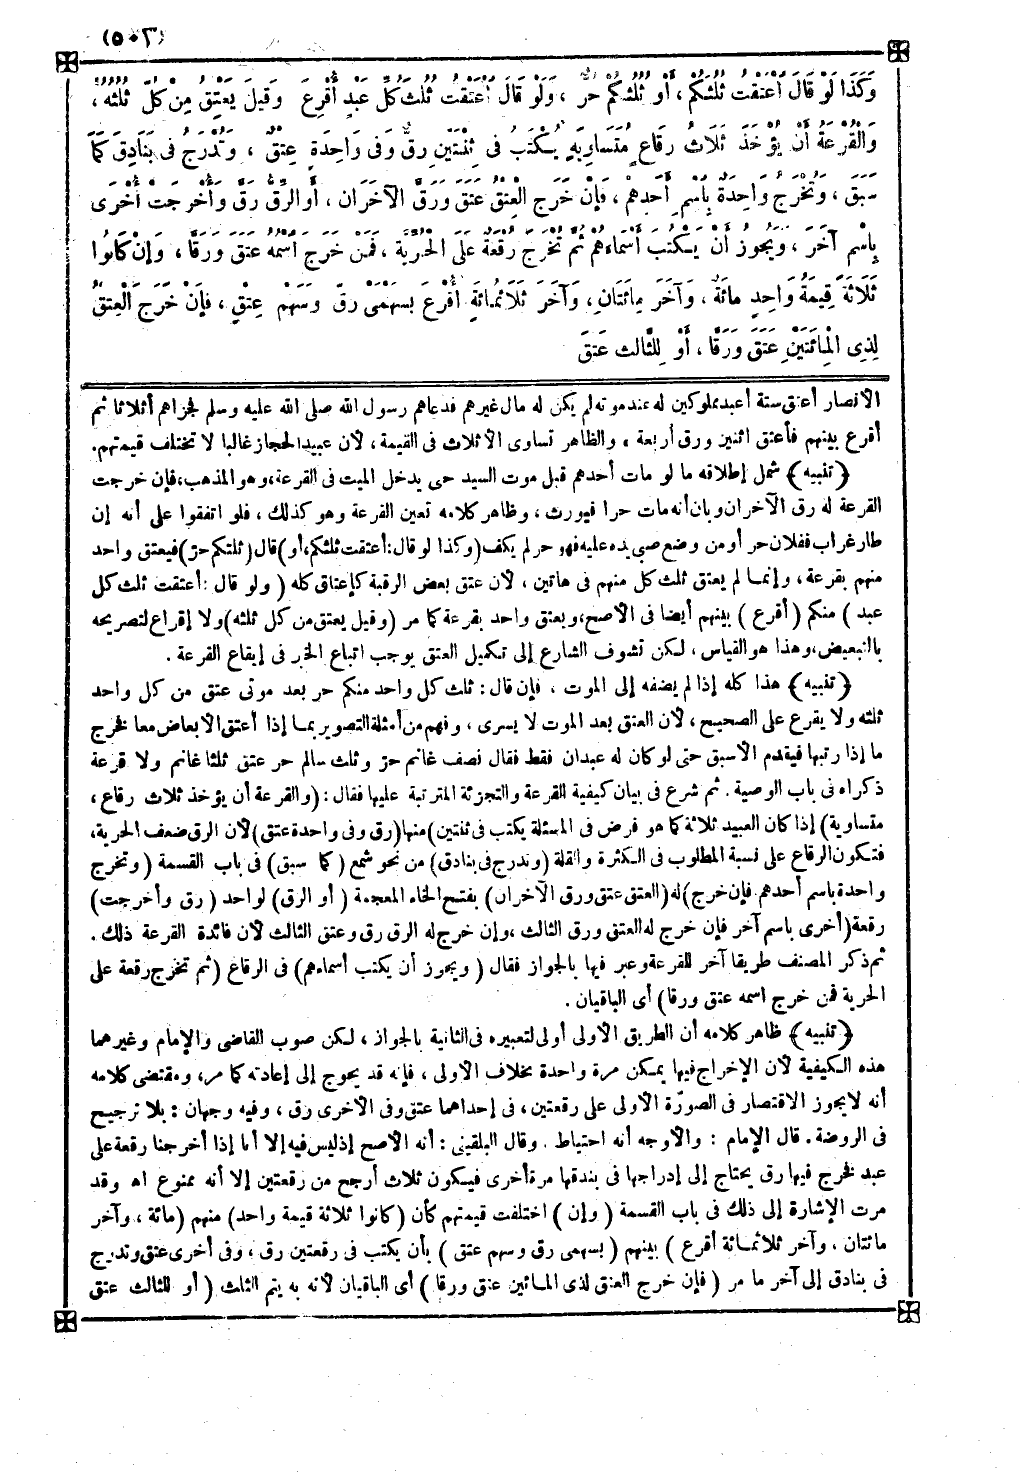 (٥٠٣)
وَكَذَا لَوْ قَالَ أَعْتَقْتُ ثُلُثَكُمْ ، أَوْ ثُلُثُكُمْ حُرٌّ ، وَلَوْ قَالَ أَعْتَقْتُ ثُلُثَ كُلِّ عَبْدٍ أُقْرِعَ وَقِيلَ يَعْتِقُ مِنْ كُلٍّ ثُلُثُهُ ،
وَالْقُرْعَةُ أَنْ يُؤْخَذَ ثَلَاثُ رِقَاعٍ مُتَسَاوِيَةٍ يُكْتَبُ فِى ثِنْتَيْنِ رِقٌّ وَفِى وَاحِدَةٍ عِتْقٌ ، وَتُدْرَجُ فِى بَنَادِقَ كَمَا
سَبَقَ ، وَتُخْرَجُ وَاحِدَةٌ بِاسْمِ أَحَدِهِمْ ، فَإِنْ خَرَجَ الْعِتْقُ عَتَقَ وَرَقَّ الْآخَرَانِ ، أَوِ الرِّقُّ رَقَّ وَأُخْرِجَتْ أُخْرَى
بِاسْمِ آخَرَ ، وَيَجُوزُ أَنْ يَكْتُبَ أَسْمَاءَهُمْ ثُمَّ تُخْرَجَ رُقْعَةٌ عَلَى الْحُرِّيَّةِ ، فَمَنْ خَرَجَ اسْمُهُ عَتَقَ وَرَقَّا ، وَإِنْ كَانُوا
ثَلَاثَةً قِيمَةُ وَاحِدٍ مِائَةٌ ، وَآخَرَ مِائَتَانِ ، وَآخَرَ ثَلَاثُمِائَةٍ أُقْرِعَ بِسَهْمَىْ رِقٍّ وَسَهْمِ عِتْقٍ ، فَإِنْ خَرَجَ الْعِتْقُ
لِذِى الْمِائَتَيْنِ عَتَقَ وَرَقَّا ، أَوْ لِلثَّالِثِ عَتَقَ
الأنصار أعتق ستة أعبد مملوكين له عند موته لم يكن له مال غيرهم فدعاهم رسول الله صلى الله عليه وسلم فجزأهم أثلاثا ثم
أقرع بينهم فأعتق اثنين ورق أربعة ، والظاهر تساوى الأثلاث فى القيمة ، لأن عبيد الحجاز غالبا لا تختلف قيمتهم.
﴿تنبيه﴾ شمل إطلاقه ما لو مات أحدهم قبل موت السيد حتى يدخل الميت فى القرعة،وهو المذهب،فإن خرجت
القرعة له رق الآخران وبان أنه مات حرا فيورث ، وظاهر كلامه تعين القرعة وهو كذلك ، فلو اتفقوا على أنه إن
طار غراب ففلان حر أو من وضع صبى يده عليه فهو حر لم يكف(وكذا لو قال:أعتقت ثلثكم،أو)قال(ثلثكم حر)فيعتق واحد
منهم بقرعة ، وإنما لم يعتق ثلث كل منهم فى هاتين ، لأن عتق بعض الرقبة كإعتاق كله ( ولو قال :أعتقت ثلث كل
عبد ) منكم ( أقرع ) بينهم أيضا فى الأصح،ويعتق واحد بقرعة كما مر (وقيل يعتق من كل ثلثه)ولا إقراع لتصريحه
بالتبعيض،وهذا هو القياس ، لكن تشوف الشارع إلى تكميل العتق يوجب اتباع الخبر فى إيقاع القرعة .
﴿تنبيه﴾ هذا كله إذا لم يضفه إلى الموت ، فإن قال : ثلث كل واحد منكم حر بعد موتى عتق من كل واحد
ثلثه ولا يقرع على الصحيح ، لأن العتق بعد الموت لا يسرى ، وفهم من أمثلة التصوير بما إذا أعتق الأبعاض معا لخرج
ما إذا رتبها فيقدم الأسبق حتى لو كان له عبدان فقط فقال نصف غانم حر وثلث سالم حر عتق ثلثا غانم ولا قرعة
ذكراه فى باب الوصية . ثم شرع فى بيان كيفية القرعة والتجزئة المترتبة عليها فقال : (والقرعة أن يؤخذ ثلاث رقاع ،
متساوية) إذا كان العبيد ثلاثة كما هو فرض فى المسئلة يكتب فى ثنتين)منها(رق وفى واحدة عتق)لأن الرق ضعف الحرية،
فتكون الرقاع على نسبة المطلوب فى الكثرة والقلة (وتدرج فى بنادق) من نحو شمع ( كما سبق) فى باب القسمة ( وتخرج
واحدة باسم أحدهم فإن خرج)له(العتق عتق ورق الآخران) بفتح الخاء المعجمة ( أو الرق) لواحد ( رق وأخرجت)
رقعة(أخرى باسم آخر فإن خرج له العتق ورق الثالث ،وإن خرج له الرق رق وعتق الثالث لأن فائدة القرعة ذلك .
ثم ذكر المصنف طريقا آخر للقرعة وعبر فيها بالجواز فقال ( ويجوز أن يكتب أسماءهم) فى الرقاع (ثم تخرج رقعة على
الحرية فمن خرج اسمه عتق ورقا) أى الباقيان .
﴿تنبيه﴾ ظاهر كلامه أن الطريق الأولى أولى لتعبيره فى الثانية بالجواز ، لكن صوب القاضى والإمام وغيرهما
هذه الكيفية لأن الإخراج فيها يمكن مرة واحدة بخلاف الأولى ، فإنه قد يحوج إلى إعادته كما مر، ومقتضى كلامه
أنه لا يجوز الاقتصار فى الصورة الأولى على رقعتين ، فى إحداهما عتق وفى الأخرى رق ، وفيه وجهان : بلا ترجيح
فى الروضة . قال الإمام : والأوجه أنه احتياط . وقال البلقينى : أنه الأصح إذ ليس فيه إلا أنا إذا أخرجنا رقعة على
عبد فخرج فيها رق يحتاج إلى إدراجها فى بندقها مرة أخرى فيكون ثلاث أرجح من رقعتين إلا أنه ممنوع اه وقد
مرت الإشارة إلى ذلك فى باب القسمة ( وإن ) اختلفت قيمتهم كأن (كانوا ثلاثة قيمة واحد) منهم (مائة ، وآخر
مائتان ، وآخر ثلاثمائة أقرع ) بينهم ( بسهمى رق وسهم عتق ) بأن يكتب فى رقعتين رق ، وفى أخرى عتق وتدرج
فى بنادق إلى آخر ما مر ( فإن خرج العتق لذى المائتين عتق ورقا ) أى الباقيان لأنه به يتم الثلث ( أو للثالث عتق